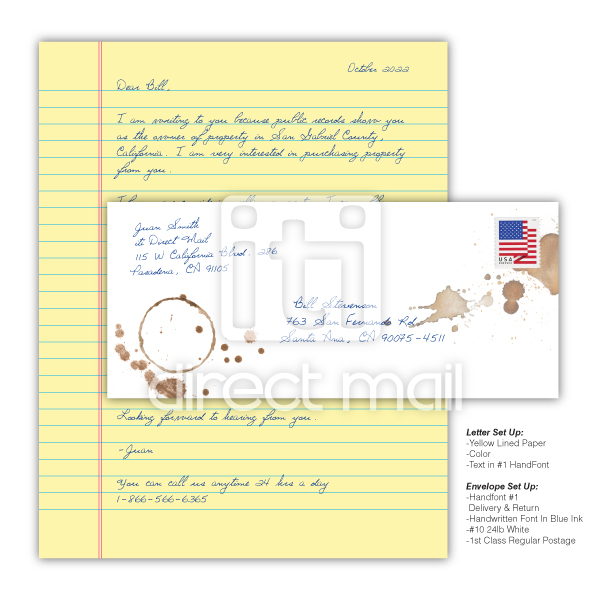 October 2022
Dear Bill,
I am writing to you because public records show you
as the owner of property in San Gabriel County,
California. I am very interested in purchasing property
from you.
Juan Smith
iti Direct Mail
115 W California Blvd. 296
Pasadena, CA 91105
USA
Bill Stevenson
763 San Fernando Rd.
Santa Ana, CA 90075-4511
iti
direct mail
Looking forward to hearing from you.
-Juan
You can call us anytime 24 hrs a day
1-866-566-6365
Letter Set Up:
-Yellow Lined Paper
-Color
-Text in #1 HandFont
Envelope Set Up:
-Handfont #1
Delivery & Return
-Handwritten Font In Blue Ink
-#10 24lb White
-1st Class Regular Postage